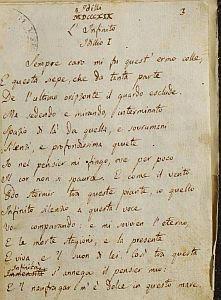 Idilli
MDCCCXIX
3
L'Infinito
Idilio I
Sempre caro mi fu quest'ermo colle,
E questa siepe che da tanta parte
De l'ultimo orizzonte il guardo esclude.
Ma sedendo e mirando, interminato
Spazio di là da quella, e sovrumani
Silenzi, e profondissima quiete
Io nel pensier mi fingo, ove per poco
Il cor non si spaura. E come il vento
Odo stormir tra queste piante, io quello
Infinito silenzio a questa voce
Vo comparando: e mi sovvien l'eterno,
E le morte stagioni, e la presente
E viva, e 'l suon di lei. Così tra questa
Infinità
Immensità s'annega il pensier mio:
E 'l naufragar m'è dolce in questo mare.